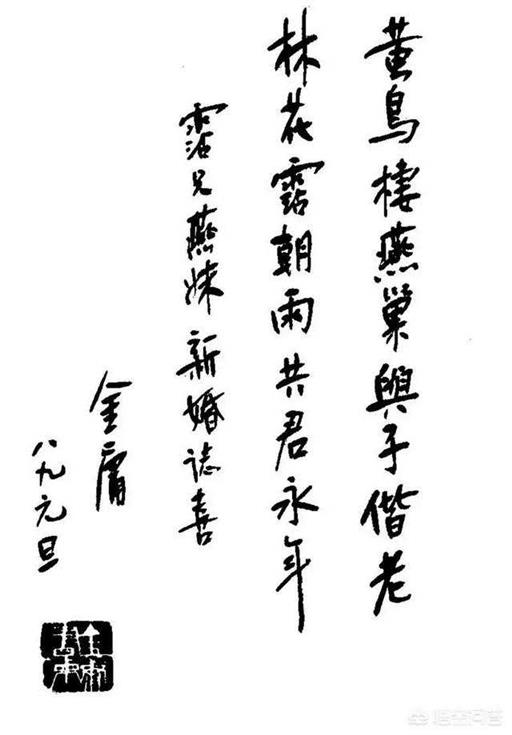 黃鳥棲燕巢與子偕老
林花霑朝雨共君永年
霑兄燕妹新婚誌喜
金庸
八九元旦
悟空问答